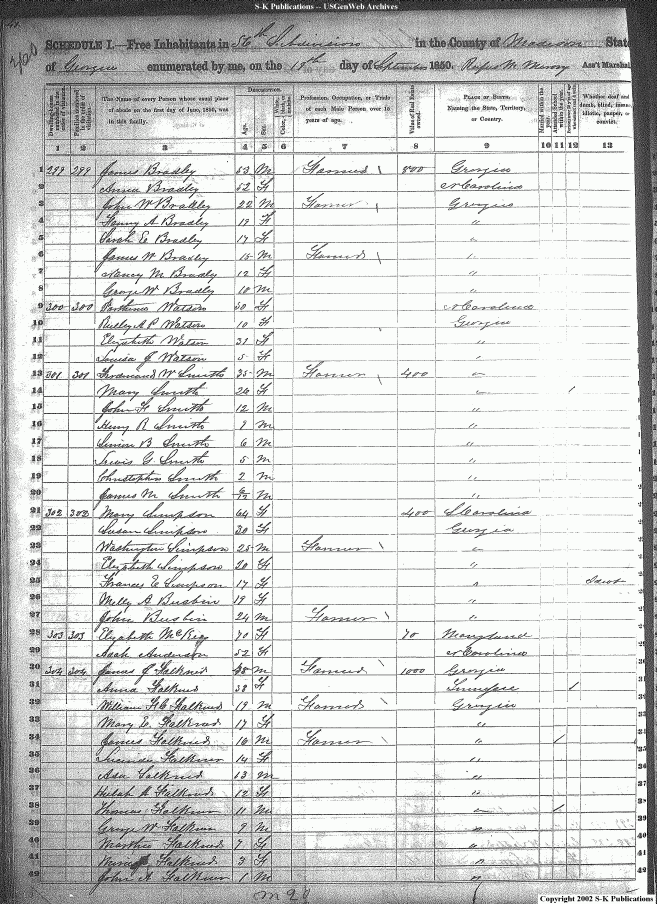 S-K Publications -- USGenWeb Archives
SCHEDULE I.—Free Inhabitants in 56th Subdivision in the County of Madison State
of Georgia enumerated by me, on the 19th day of September 1850. Ass't Marshal
The Name of every Person whose usual place of abode on the first day of June, 1850, was in this family.
DESCRIPTION.
Age.
Sex.
Profession, Occupation, or Trade of each Male Person over 15 years of age.
Value of Real Estate owned.
PLACE OF BIRTH. Naming the State, Territory, or Country.
Whether deaf and dumb, blind, insane, idiotic, pauper, or convict.
1 2 3 4 5 6 7 8 9 10 11 12 13
1 299 299 James Bradley 53 M Farmer 800 Georgia
2 Anna Bradley 52 F N Carolina
3 John W Bradley 22 M Farmer Georgia
4 A Bradley 19 F "
5 Sarah E Bradley 17 F "
6 James W Bradly 15 M Farmer "
7 Nancy M Bradly 12 F "
8 George W Bradly 10 M "
9 300 300 Watson 50 F N Carolina
10 A P Watson 10 F Georgia
11 Elizabeth Watson 31 F "
12 Louisa J Watson 5 F "
13 301 301 Ferdinand W Smith 35 M Farmer 400 "
14 Mary Smith 26 F " 1
15 John F Smith 12 M "
16 Henry R Smith 9 M "
17 B Smith 6 M "
18 Lewis G Smith 5 M "
19 Christopher Smith 2 M "
20 James M Smith /12 M "
21 302 302 Mary Simpson 64 F 400 S Carolina
22 Susan Simpson 30 F Georgia
23 Washington Simpson 25 M Farmer "
24 Elizabeth Simpson 20 F "
25 Frances E Simpson 17 F " Idiot
26 Milly A Busbin 19 F "
27 John Busbin 24 M Farmer "
28 303 303 Elizabeth 70 F 70 Maryland
29 Anderson 52 F N Carolina
30 304 304 James J Falkner M Farmer 1000 Georgia
31 Anna Falkner 38 F Tennessee 1
32 William H C Falkner 19 M Farmer Georgia
33 Mary E. Falkner 17 F "
34 James Falkner 16 M Farmer " 1
35 Lucinda Falkner 14 F "
36 Asa Falkner 13 M "
37 A Falkner 12 F "
38 Thomas Falkner 11 M " 1
39 George W Falkner 9 M "
40 Martha Falkner 7 F "
41 Falkner 3 F "
42 John A Falkner 1 M "
m 20
Copyright 2002 S-K Publications